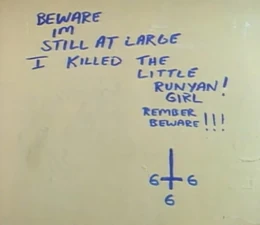 BEWARE
IM
STILL AT LARGE
I KILLED THE
LITTLE
RUNYAN!
GIRL
REMBER
BEWARE!!!
6 6
6